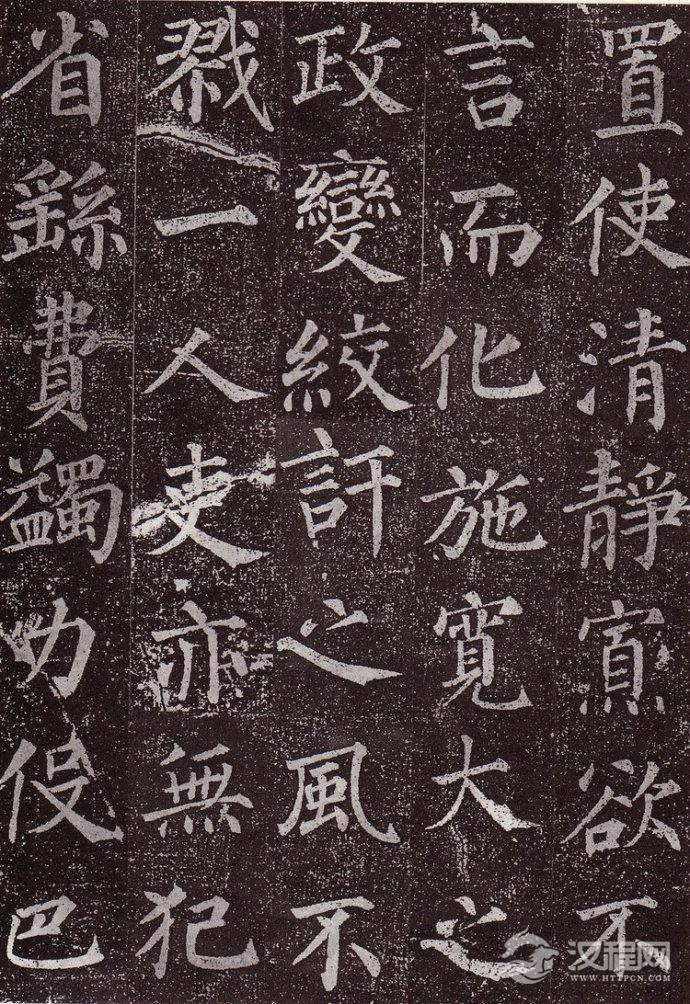 置使清靜寡欲不
言而化施寬大之
政變絞訐之風不
戮一人吏亦無犯
省繇費蠲力伇巴
汉程网
WWW.HTTPCN.COM